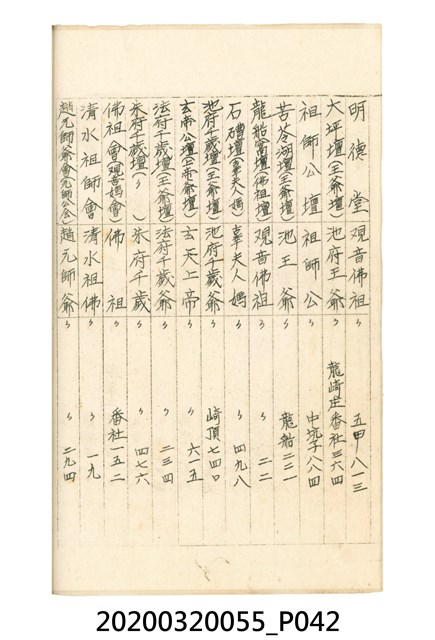 明德堂 觀音佛祖 〃 五甲八一三
大坪壇(王爺壇) 池府王爺 〃 龍崎庄番社三六四
祖師公壇 祖師公 〃 中坑子八八四
苦苓湖壇(王爺壇) 池王爺 〃 龍船二二一
龍船窩壇(佛祖壇) 觀音佛祖 〃 〃 二二
石𥕢壇(辜夫人媽) 辜夫人媽 〃 〃 四九八
池府千歲壇(王爺壇) 池府千歲爺 〃 崎頂七四〇
玄帝公壇(上帝爺壇) 玄天上帝 〃 〃 六一五
法府千歲壇(王爺壇) 法府千歲爺 〃 〃 二三四
朱府千歲壇(〃) 朱府千歲 〃 〃 四七六
佛祖會(觀音媽會) 佛祖 〃 番社一五二
清水祖師會 清水祖佛 〃 〃 一九
趙元師爺會(元師公會) 趙元師爺 〃 〃 二九四
20200320055_P042